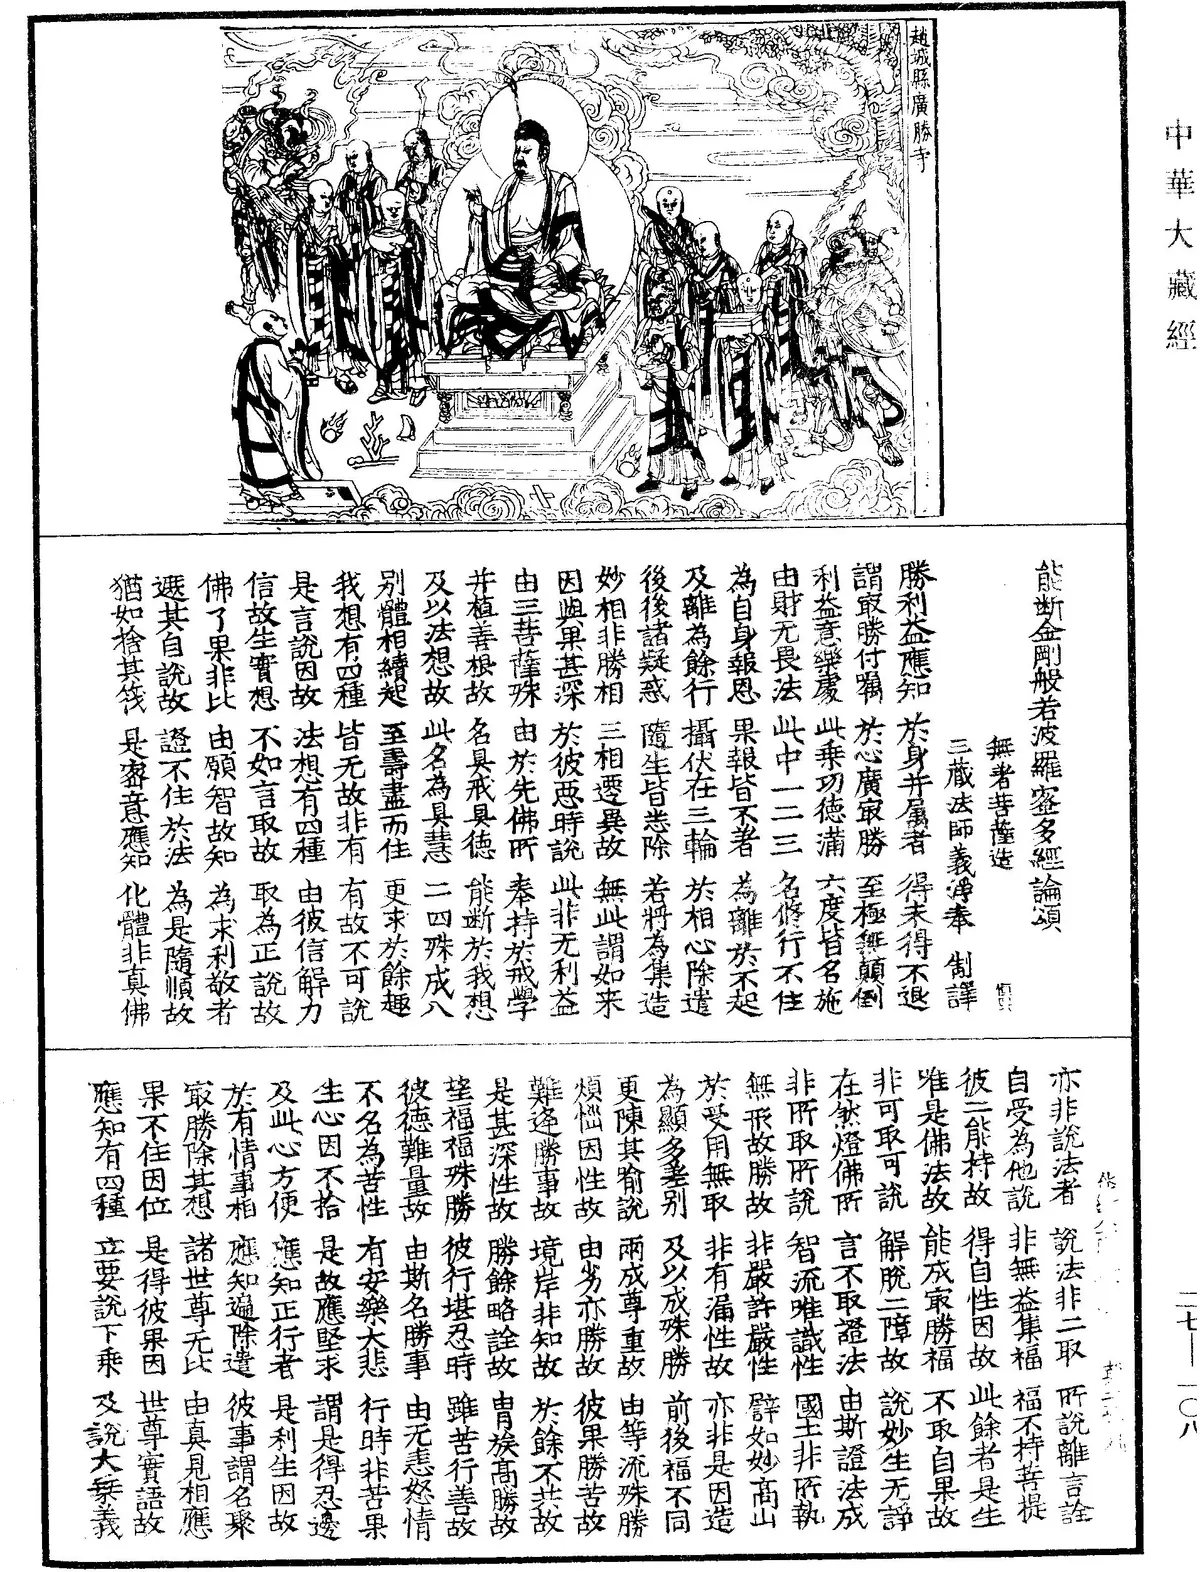 中華大藏經
趙城縣廣勝寺
能断金剛般若波羅蜜多經論頌
無著菩薩造
三藏法師義淨奉 制譯
勝利益應知 於身并屬者 得未得不退
謂㝡勝付囑 於心廣㝡勝 至極無顛倒
利益意樂處 此乗功德滿 六度皆名施
由財无畏法 此中一二三 名修行不住
為自身報恩 果報皆不著 為離於不起
及離為餘行 攝伏在三輪 於相心除遣
後後諸疑惑 隨生皆悉除 若將為集造
妙相非勝相 三相遷異故 無此謂如来
因與果甚深 於彼惡時說 此非无利益
由三菩薩殊 由於先佛所 奉持於戒學
并植善根故 名具戒具德 能断於我想
及以法想故 此名為具慧 二四殊成八
别體相續起 至壽盡而住 更求於餘趣
我想有四種 皆无故非有 有故不可說
是言說因故 法想有四種 由彼信解力
信故生實想 不如言取故 取為正說故
佛了果非比 由願智故知 為求利敬者
遮其自說故 證不住於法 為是隨順故
猶如捨其筏 是密意應知 化體非真佛
亦非說法者 說法非二取 所說離言詮
自受為他說 非無益集福 福不持菩提
彼二能持故 得自性因故 此餘者是生
唯是佛法故 能成㝡勝福 不取自果故
非可取可說 解脫二障故 說妙生无諍
在然燈佛所 言不取證法 由斯證法成
非所取所說 智流唯識性 國土非所執
無形故勝故 非嚴許嚴性 譬如妙髙山
於受用無取 非有漏性故 亦非是因造
為顯多差别 及以成殊勝 前後福不同
更陳其喻說 兩成尊重故 由等流殊勝
煩惱因性故 由劣亦勝故 彼果勝苦故
難逢勝事故 境岸非知故 於餘不共故
是甚深性故 勝餘略詮故 胄族髙勝故
望福福殊勝 彼行堪忍時 雖苦行善故
彼德難量故 由斯名勝事 由无恚怒情
不名為苦性 有安樂大悲 行時非苦果
生心因不捨 是故應堅求 謂是得忍邊
及此心方便 應知正行者 是利生因故
於有情事相 應知遍除遣 彼事謂名聚
㝡勝除其想 諸世尊无此 由真見相應
果不住因位 是得彼果因 世尊實語故
應知有四種 立要說下乗 及說大乗義
二七—一〇八